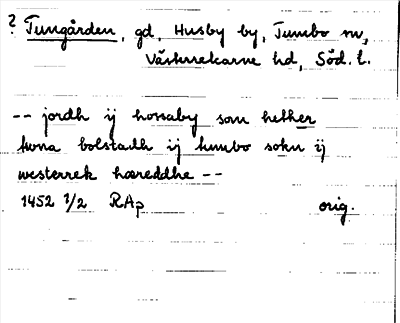 ? Tungården, gd, Husby by, Tumbo sn,
Västerrekarne hd, Söd. l.
-- jordh ij horsaby som hether
tuna bolstadh ij tumbo sokn ij
westerrek hæreddhe --
1452 1/2 RAp orig.